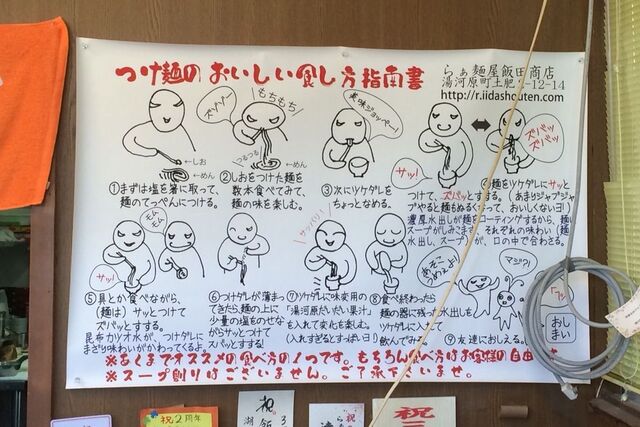 つけ麺の おいしい食し方指南書
らぁ麺屋飯田商店
湯河原町土肥2-12-14
http://r.iidashouten.com
ズゾゾー
もちもち
美味ジョッペー!
ズバッ
ズバッ
ズズッ
サッ!
しお
めん
つるつる
めん
①まずは塩を箸に取って、
麺のてっぺんにつける。
②しおをつけた麺を
数本食べてみて、
麺の味を楽しむ。
③次にツケダレを
ちょっとなめる。
④麺をツケダレにサッと
つけて、ズバッとすする。(あまりジャブジャ
ブやると麺もぬるくなって、おいしくないヨ!)
濃厚水出しが麺をコーティングするから、麺
スープがしみこまず、それぞれの味わい(麺
水出し、スープ)が、口の中で合わさる。
モム
モム
サッ!
サッパリ
⑤具とか食べながら、
(麺は)サッとつけて
ズバッとすする。
昆布カツオ水が、つけダレに
まざり味わいがかわってくるよ。
⑥つけダレが薄まっ
てきたら麺の上に
少量の塩をのせな
がらサッとつけて
スバッとする!
⑦ツケダレに味変用の
「湯河原だいだい果汁」
を入れて変化も楽しむ。
(入れすぎるとすっぱいヨ!)
⑧食べ終わったら
麺の器に残った水出しを
ツケダレに入れて
飲んでみて!
マジッ?
⑨友達におしえる。
おし
まい
※あくまでオススメの食べ方の1つです。もちろん食べ方はお客様の自由
※スープ割りはございません。ご了承下さいませ。
祝2周年
祝
湖
飯
ろ
ら
祝
祝